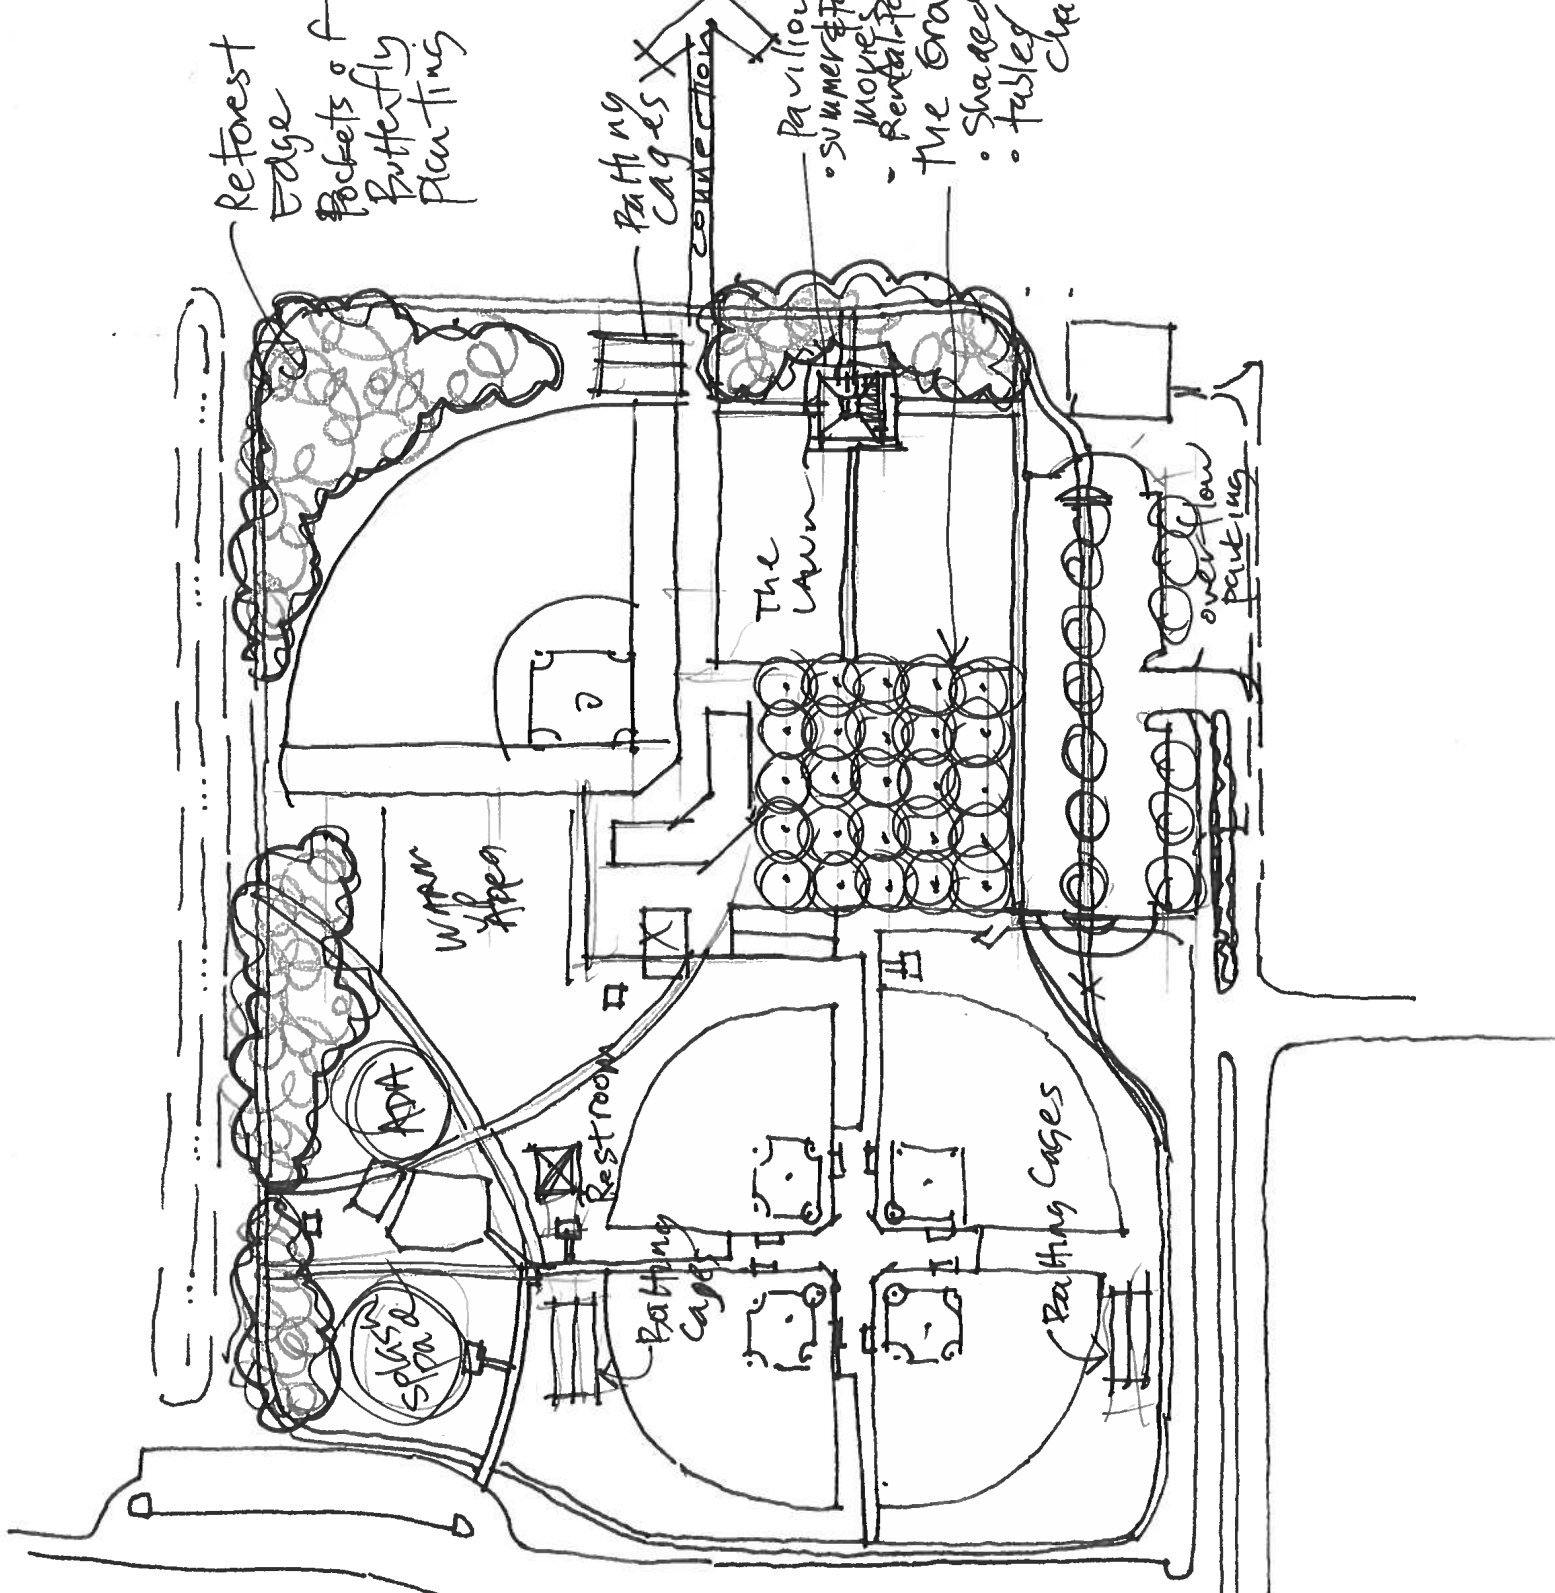 Reforest
Edge
Pockets of
Butterfly
planting
Batting
cages
connection
Pavilion
• summer
movies
• Rental
the Gra
• Shaded
• tables
cha
The
Lawn
overflow
parking
Warm
up
Area
ADA
Restroom
Splash
pad
Batting
Cages
Batting Cages